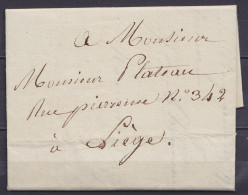 A Monsieur
Monsieur Plateau
Rue pierreuse N.º 342
à Liège.